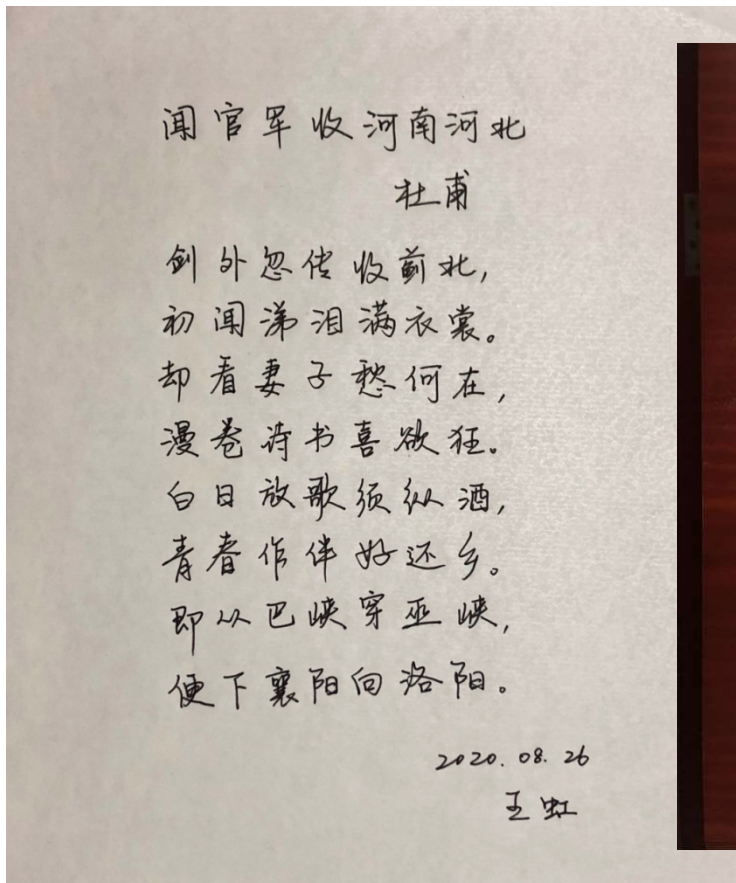 闻官军收河南河北
杜甫
剑外忽传收蓟北,
初闻涕泪满衣裳。
却看妻子愁何在,
漫卷诗书喜欲狂。
白日放歌须纵酒,
青春作伴好还乡。
即从巴峡穿巫峡,
便下襄阳向洛阳。
2020.08.26
王虹